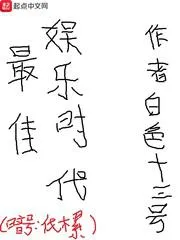 起点中文网
最佳
娱乐时代
作者白色十三号
(暗号:伐木累)